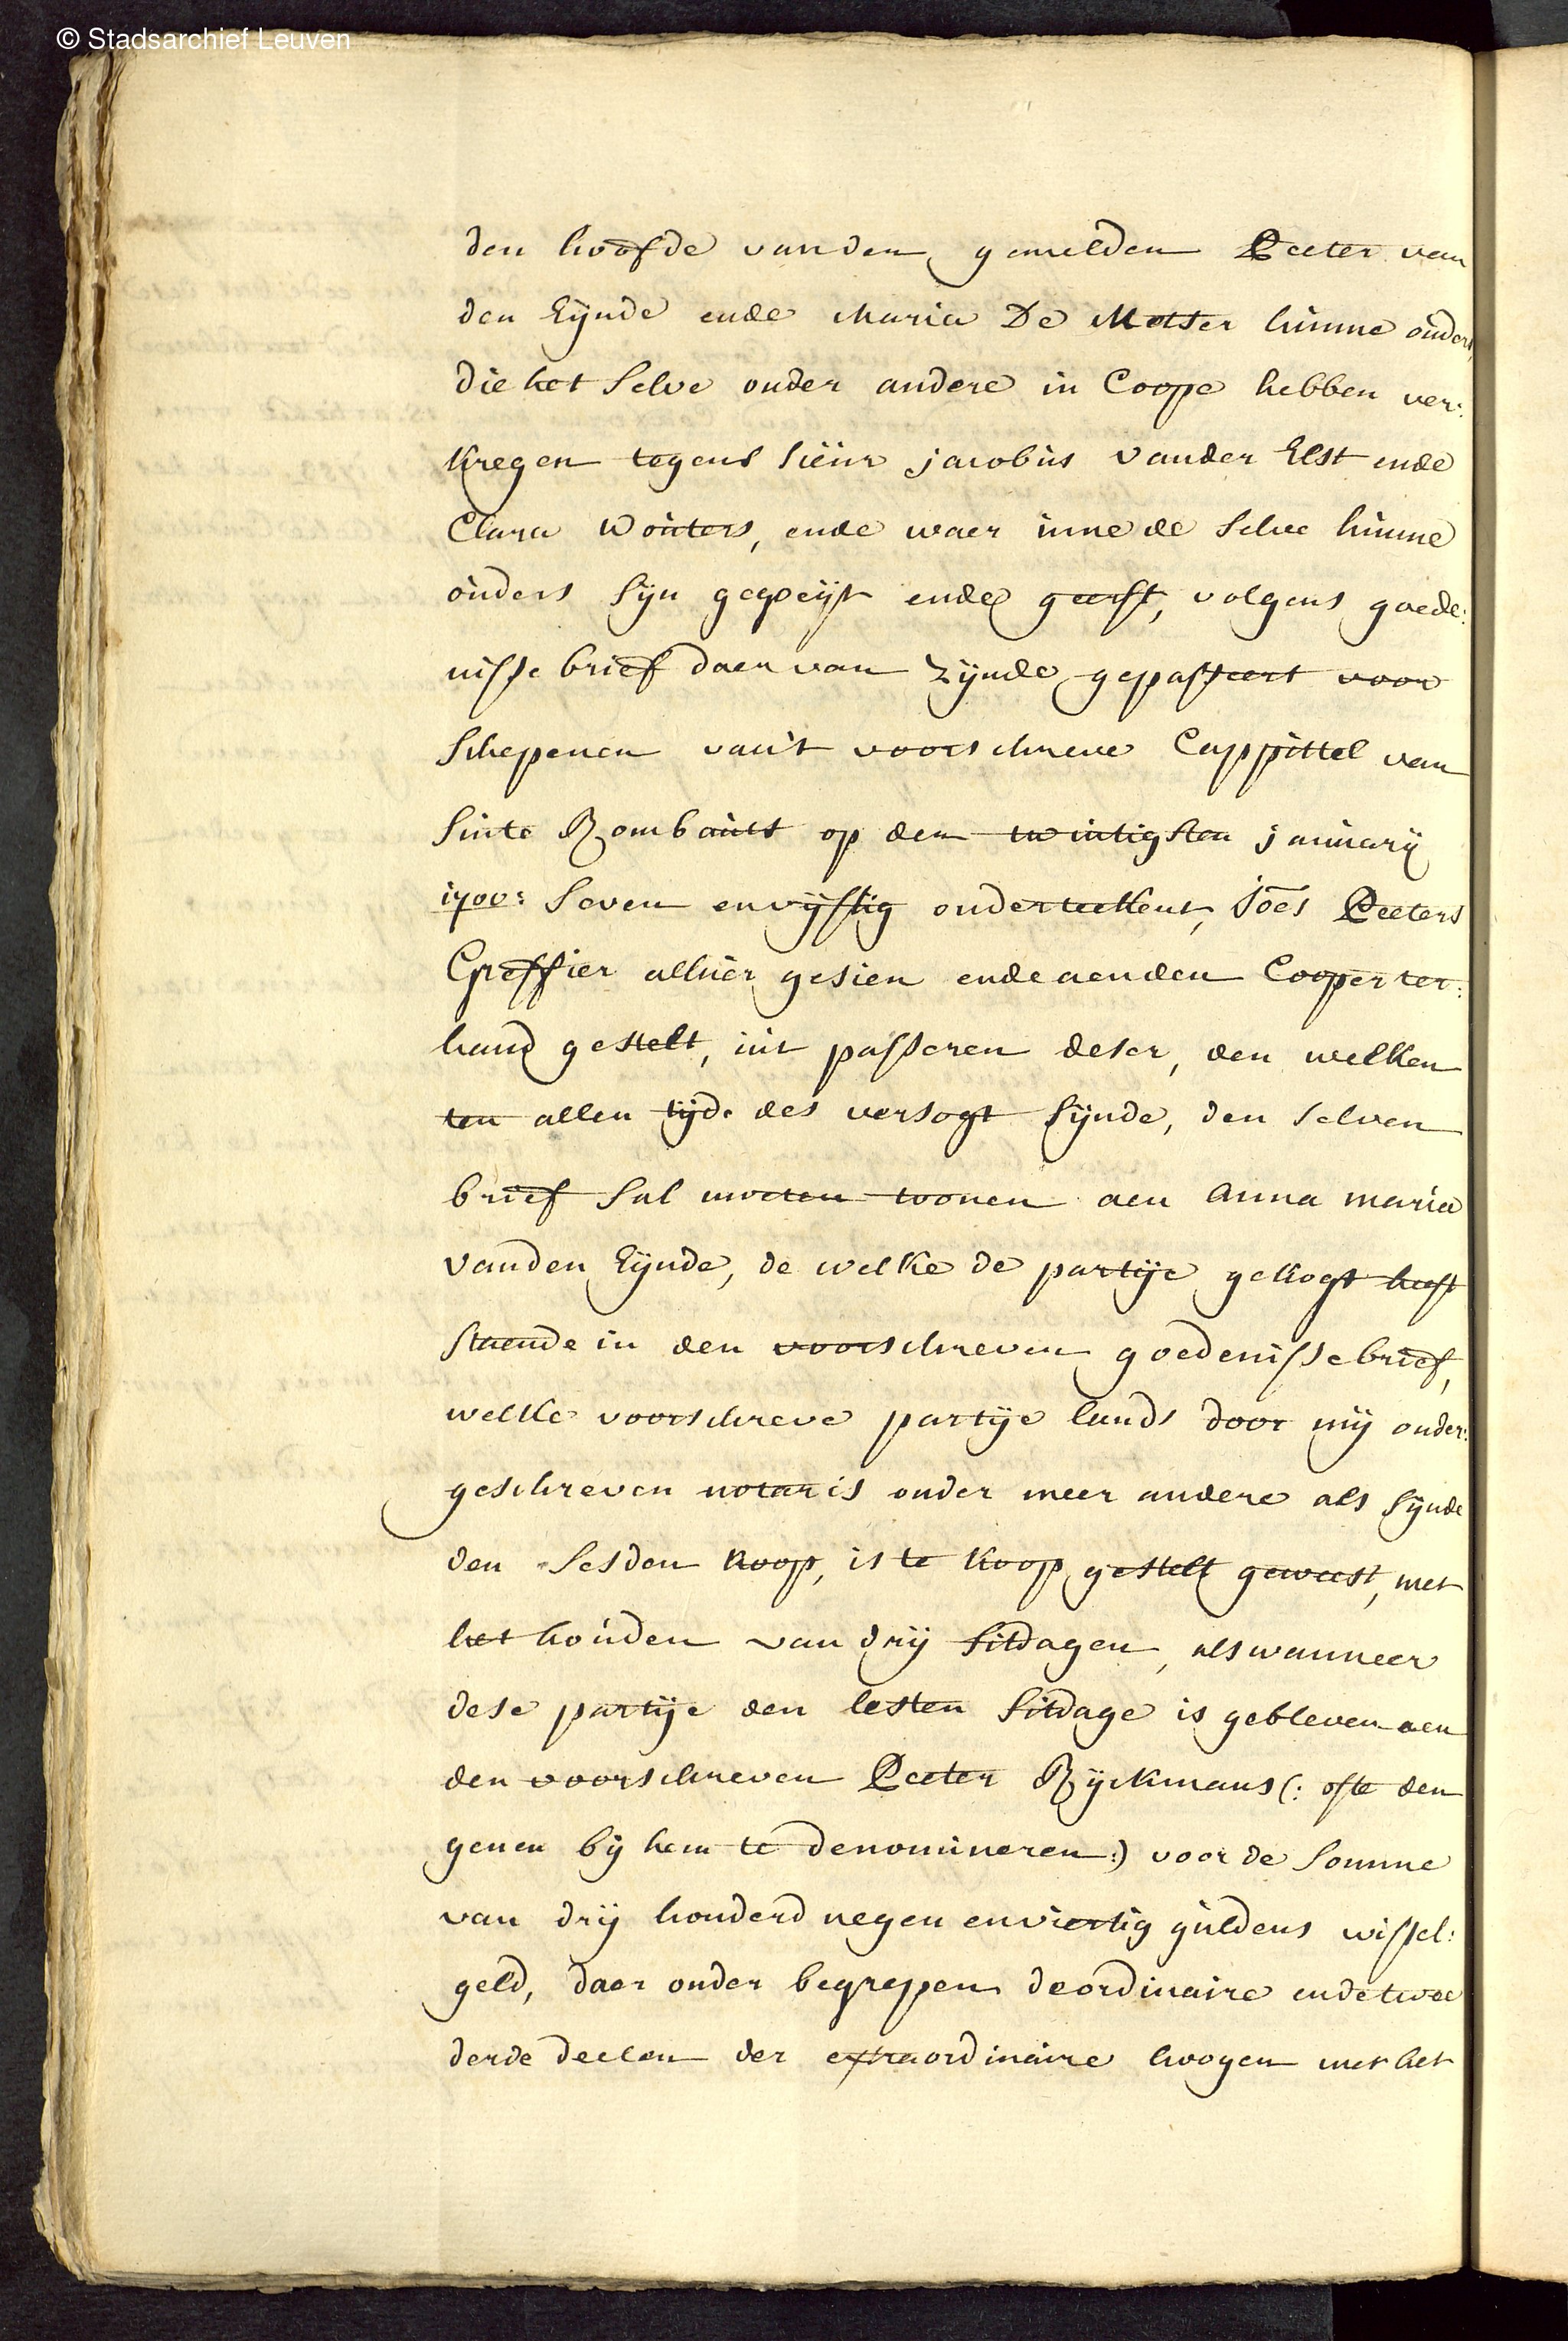 © Stadsarchief Leuven
den hoofde vanden gemelden Peeter van
den Eijnde ende Maria De Metser hunne ouders,
die het selve onder andere in Coope hebben ver:
kregen tegens sieur jacobus vander Elst ende
Clara Wouters, ende waer inne de selve hunne
ouders sijn gegoeijt ende geerft, volgens goede:
nisse brief daer van zijnde gepasseert voor
schepenen van't voorschreve Cappittel van
sinte Rombauts op den twintigsten januarij
1700: seven en vijftig onderteekent, Joes Peeters
Greffier alhier gesien ende aenden Cooper ter:
hand gestelt, int passeren deser, den welken
ten allen tijde des versogt sijnde, den selven
brief sal moeten toonen aen anna maria
vanden Eijnde, de welke de partije gekogt heeft
staende in den voorschreven goedenisse brief,
welke voorschreve partije lands door mij onder:
geschreven notaris onder meer andere als sijnde
den sesden koop, is te koop gestelt geweest, met
het houden van drij sitdagen, als wanneer
dese partije den lesten sitdage is gebleven aen
den voorschreven Peeter Rijckmans (: ofte den
genen bij hem te denomineren :) voor de somme
van drij honderd negen en viertig guldens wissel:
geld, daer onder begrepen de ordinaire ende twee
derde deelen der extraordinaire hoogen met het